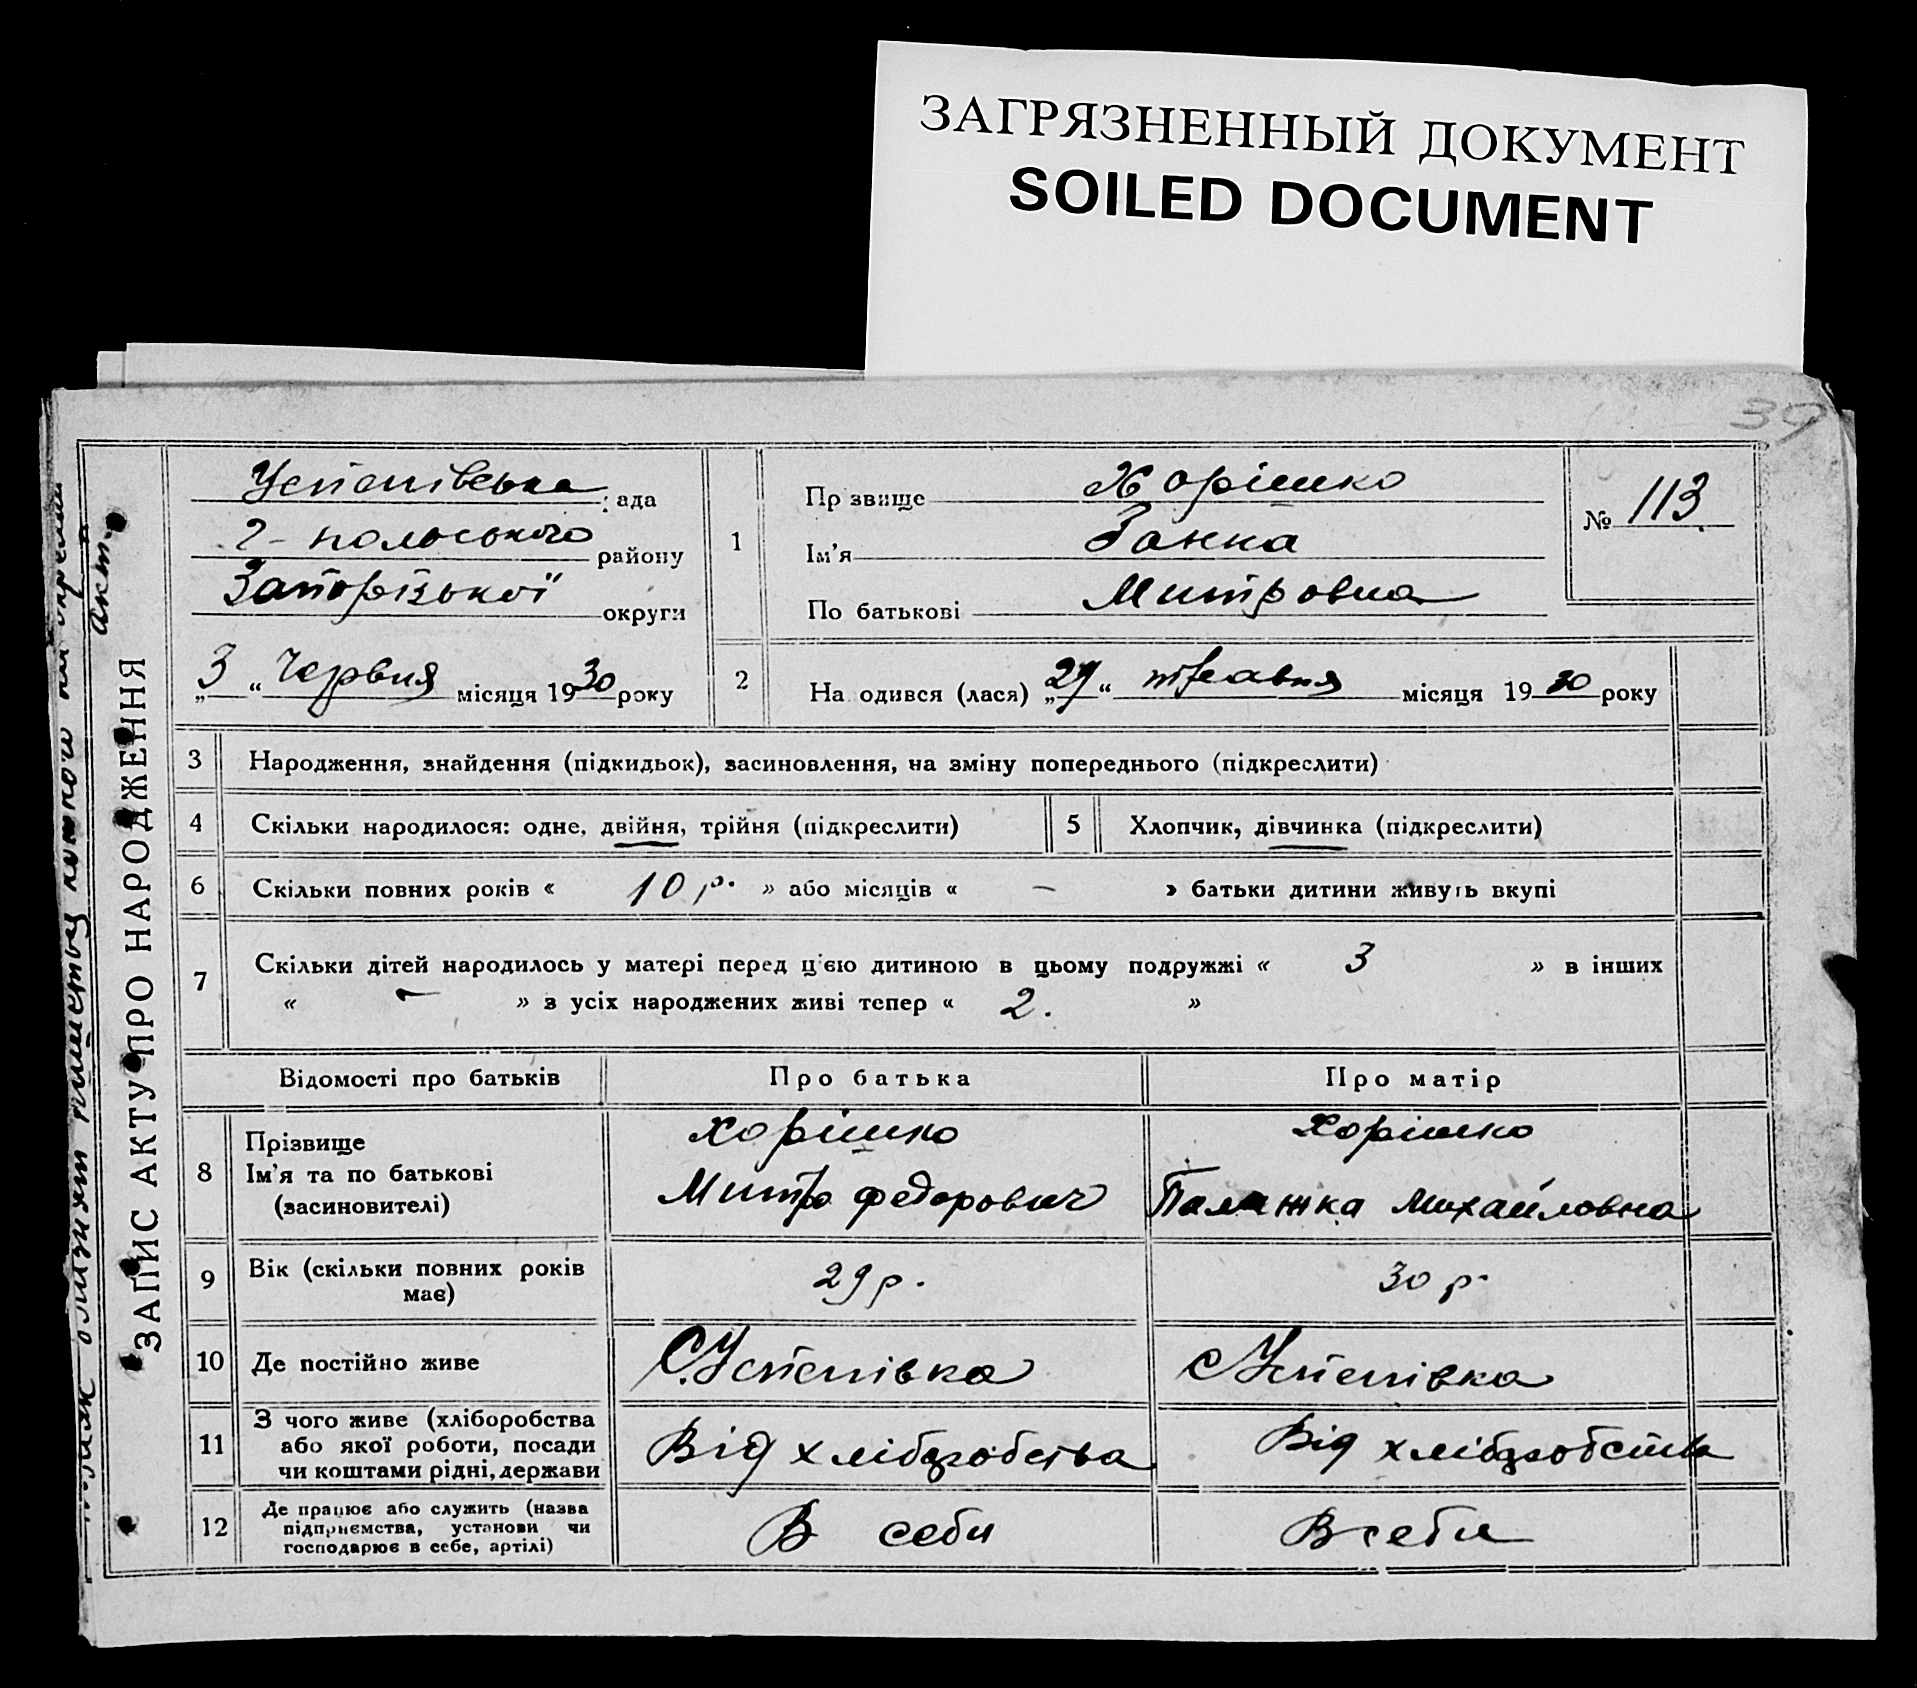 ЗАГРЯЗНЕННЫЙ ДОКУМЕНТ
SOILED DOCUMENT
39
акт.
ЗАПИС АКТУ ПРО НАРОДЖЕННЯ
Успенівська рада
Г-польського району
Запорізької округи
„3“ Червня місяця 1930 року
1
Прізвище Хорішко
Ім'я Ганна
По батькові Митровна
№ 113
2 Народився (лася) „29“ травня місяця 1930 року
3 Народження, знайдення (підкидьок), засиновлення, на зміну попереднього (підкреслити)
4 Скільки народилося: одне, двійня, трійня (підкреслити) 5 Хлопчик, дівчинка (підкреслити)
6 Скільки повних років « 10 р. » або місяців « – » батьки дитини живуть вкупі
7 Скільки дітей народилось у матері перед цією дитиною в цьому подружжі « 3 » в інших
« – » з усіх народжених живі тепер « 2. »
Відомості про батьків Про батька Про матір
8 Прізвище Хорішко Хорішко
Ім'я та по батькові Митро Федорович Палажка Михайловна
(засиновителі)
9 Вік (скільки повних років має) 29 р. 30 р.
10 Де постійно живе С. Успенівка С Успенівка
11 З чого живе (хліборобства
або якої роботи, посади
чи коштами рідні, держави Від хліборобства Від хліборобства
12 Де працює або служить (назва
підприємства, установи чи
господарює в себе, артілі) В себи В себи